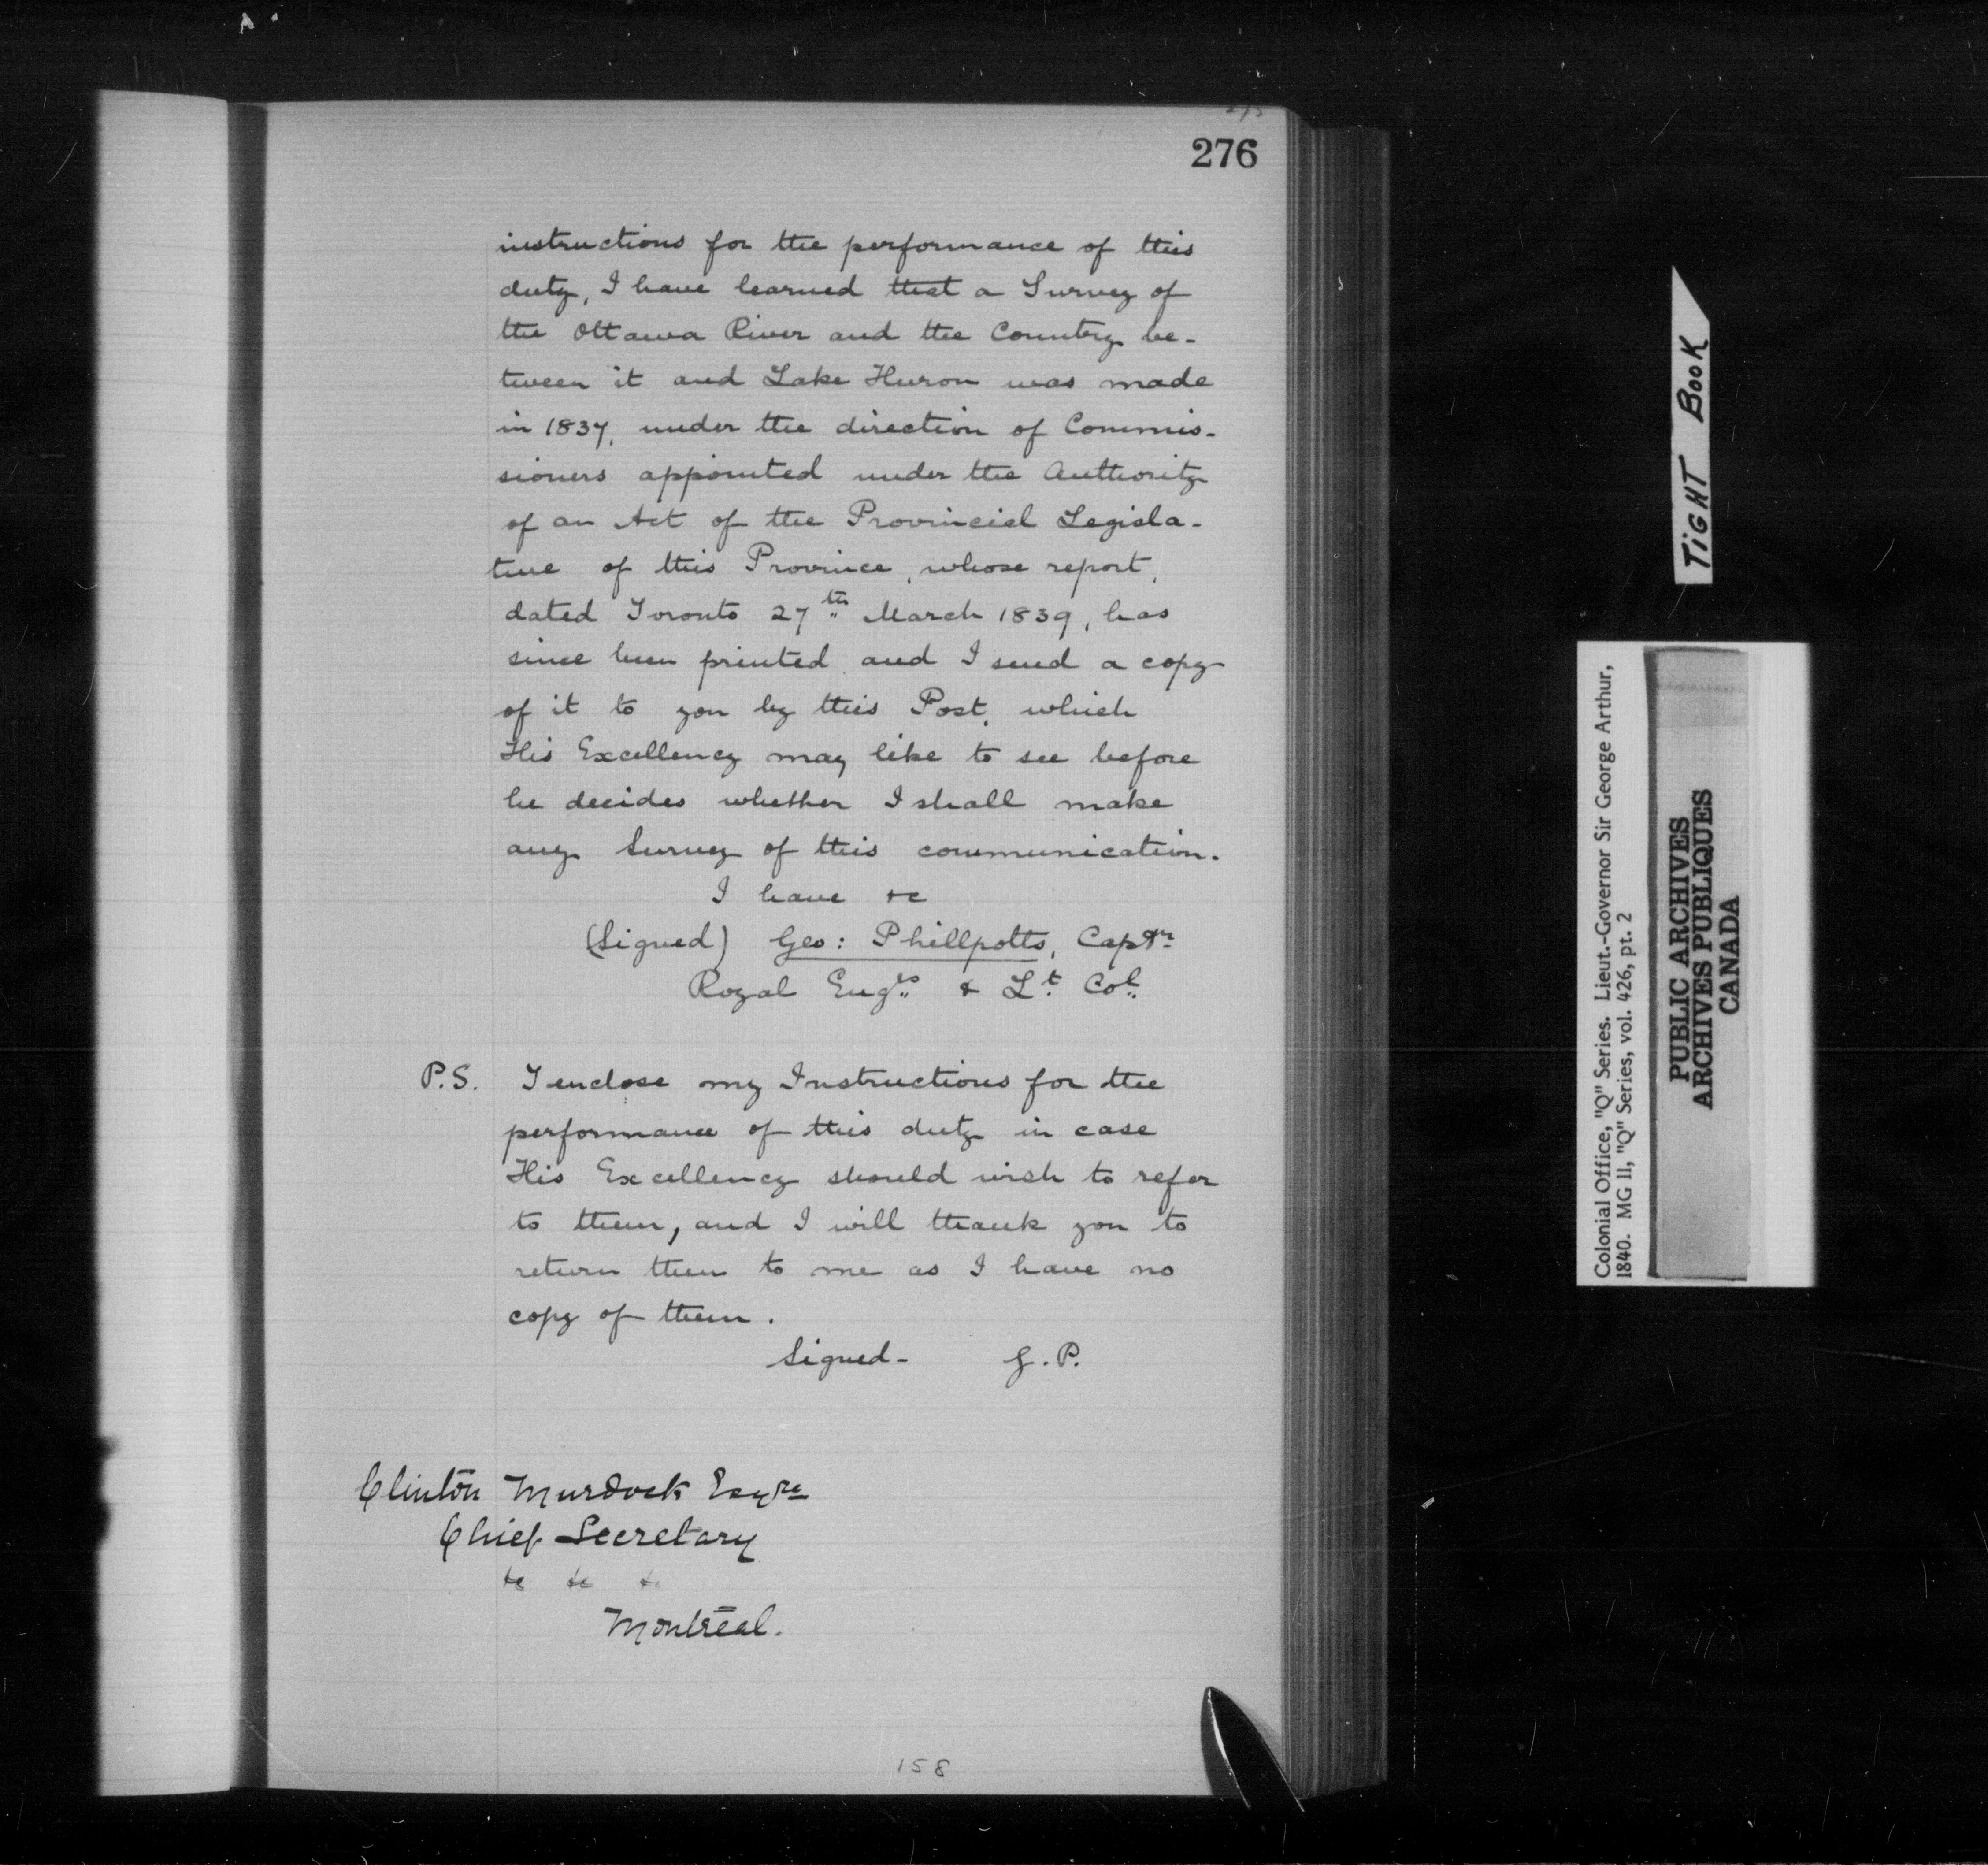 275
276
instructions for the performance of this
duty, I have learned that a Survey of
the Ottawa River and the Country be-
tween it and Lake Huron was made
in 1837, under the direction of Commis-
sioners appointed under the Authority
of an Act of the Provincial Legisla-
ture of this Province, whose report,
dated Toronto 27th March 1839, has
since been printed and I send a copy
of it to you by this Post, which
His Excellency may like to see before
he decides whether I shall make
any Survey of this communication.
I have &c
(Signed) Geo: Phillpotts, Captn
Royal Engrs & Lt Col
P.S. I enclose my Instructions for the
performance of this duty in case
His Excellency should wish to refer
to them, and I will thank you to
return them to me as I have no
copy of them.
Signed- G. P.
Clinton Murdock Esqre
Chief Secretary
&c &c &c
Montreal.
158
TIGHT BOOK
Colonial Office, "Q" Series. Lieut.-Governor Sir George Arthur,
1840. MG 11, "Q" Series, vol. 426, pt. 2
PUBLIC ARCHIVES
ARCHIVES PUBLIQUES
CANADA